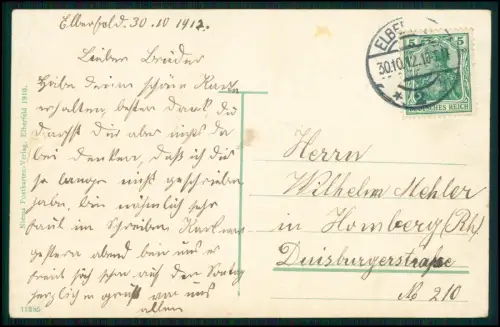 Elberfeld. 30.10 1912.
Lieber Bruder
Habe deine schöne Karte
erhalten, besten Dank, du
darfst dir aber nichts da
bei denken, daß ich dir
so lange nicht geschrieben
habe, bin nämlich sehr
faul im Schreiben. Karl war
gestern abend bei uns er
freut sich schon auf den Sontag
herzlich grüßt von uns
allen
Herrn
Wilhelm Mehler
in Homberg (Rh).
Duisburgerstraße
No 210
ELBE
30.10.12.
5 5
DEUTSCHES REICH
Postkarten-Verlag, Elberfeld 1910.